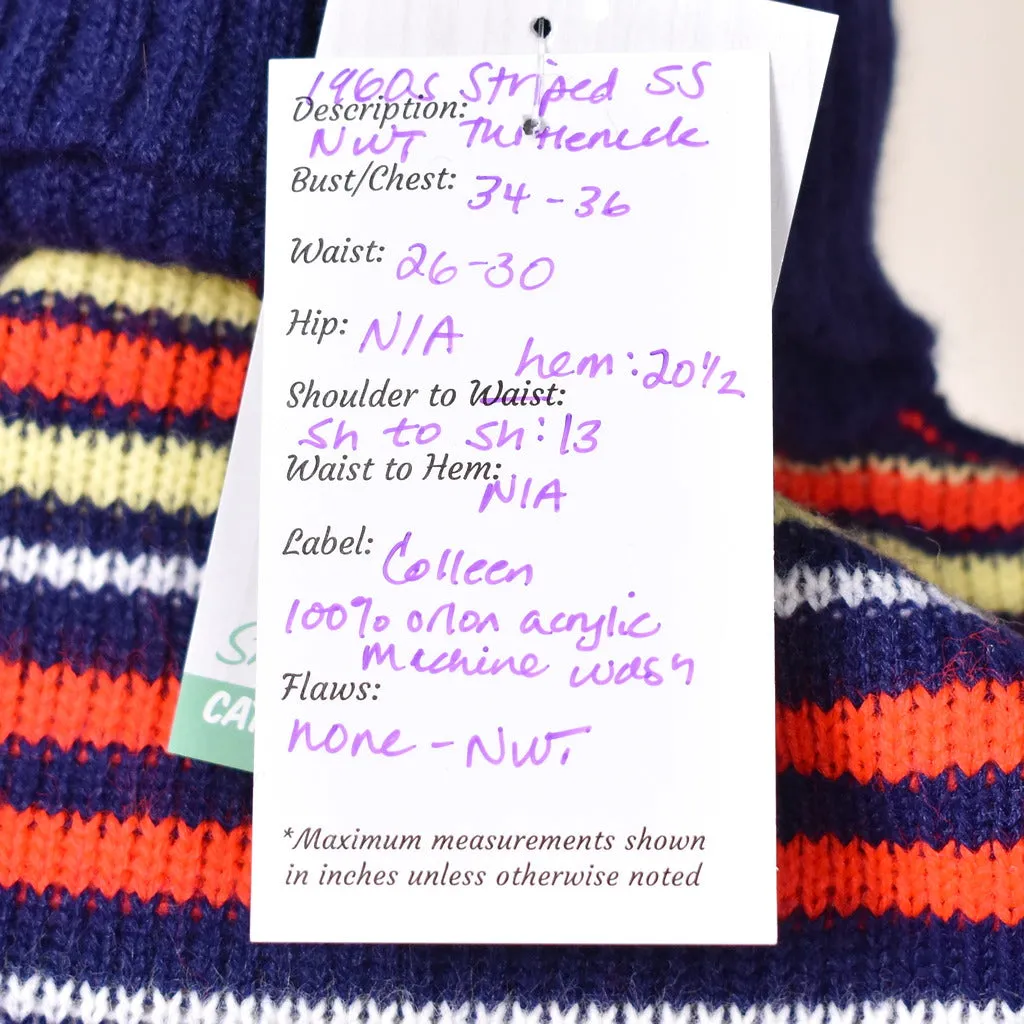 1960s Striped SS
Description:
NWT Turtleneck
Bust/Chest: 34-36
Waist: 26-30
Hip: N/A
hem: 20 1/2
Shoulder to Waist:
Sh to Sh: 13
Waist to Hem:
N/A
Label: Colleen
100% orlon acrylic
Machine wash
Flaws:
none - NWT
*Maximum measurements shown
in inches unless otherwise noted